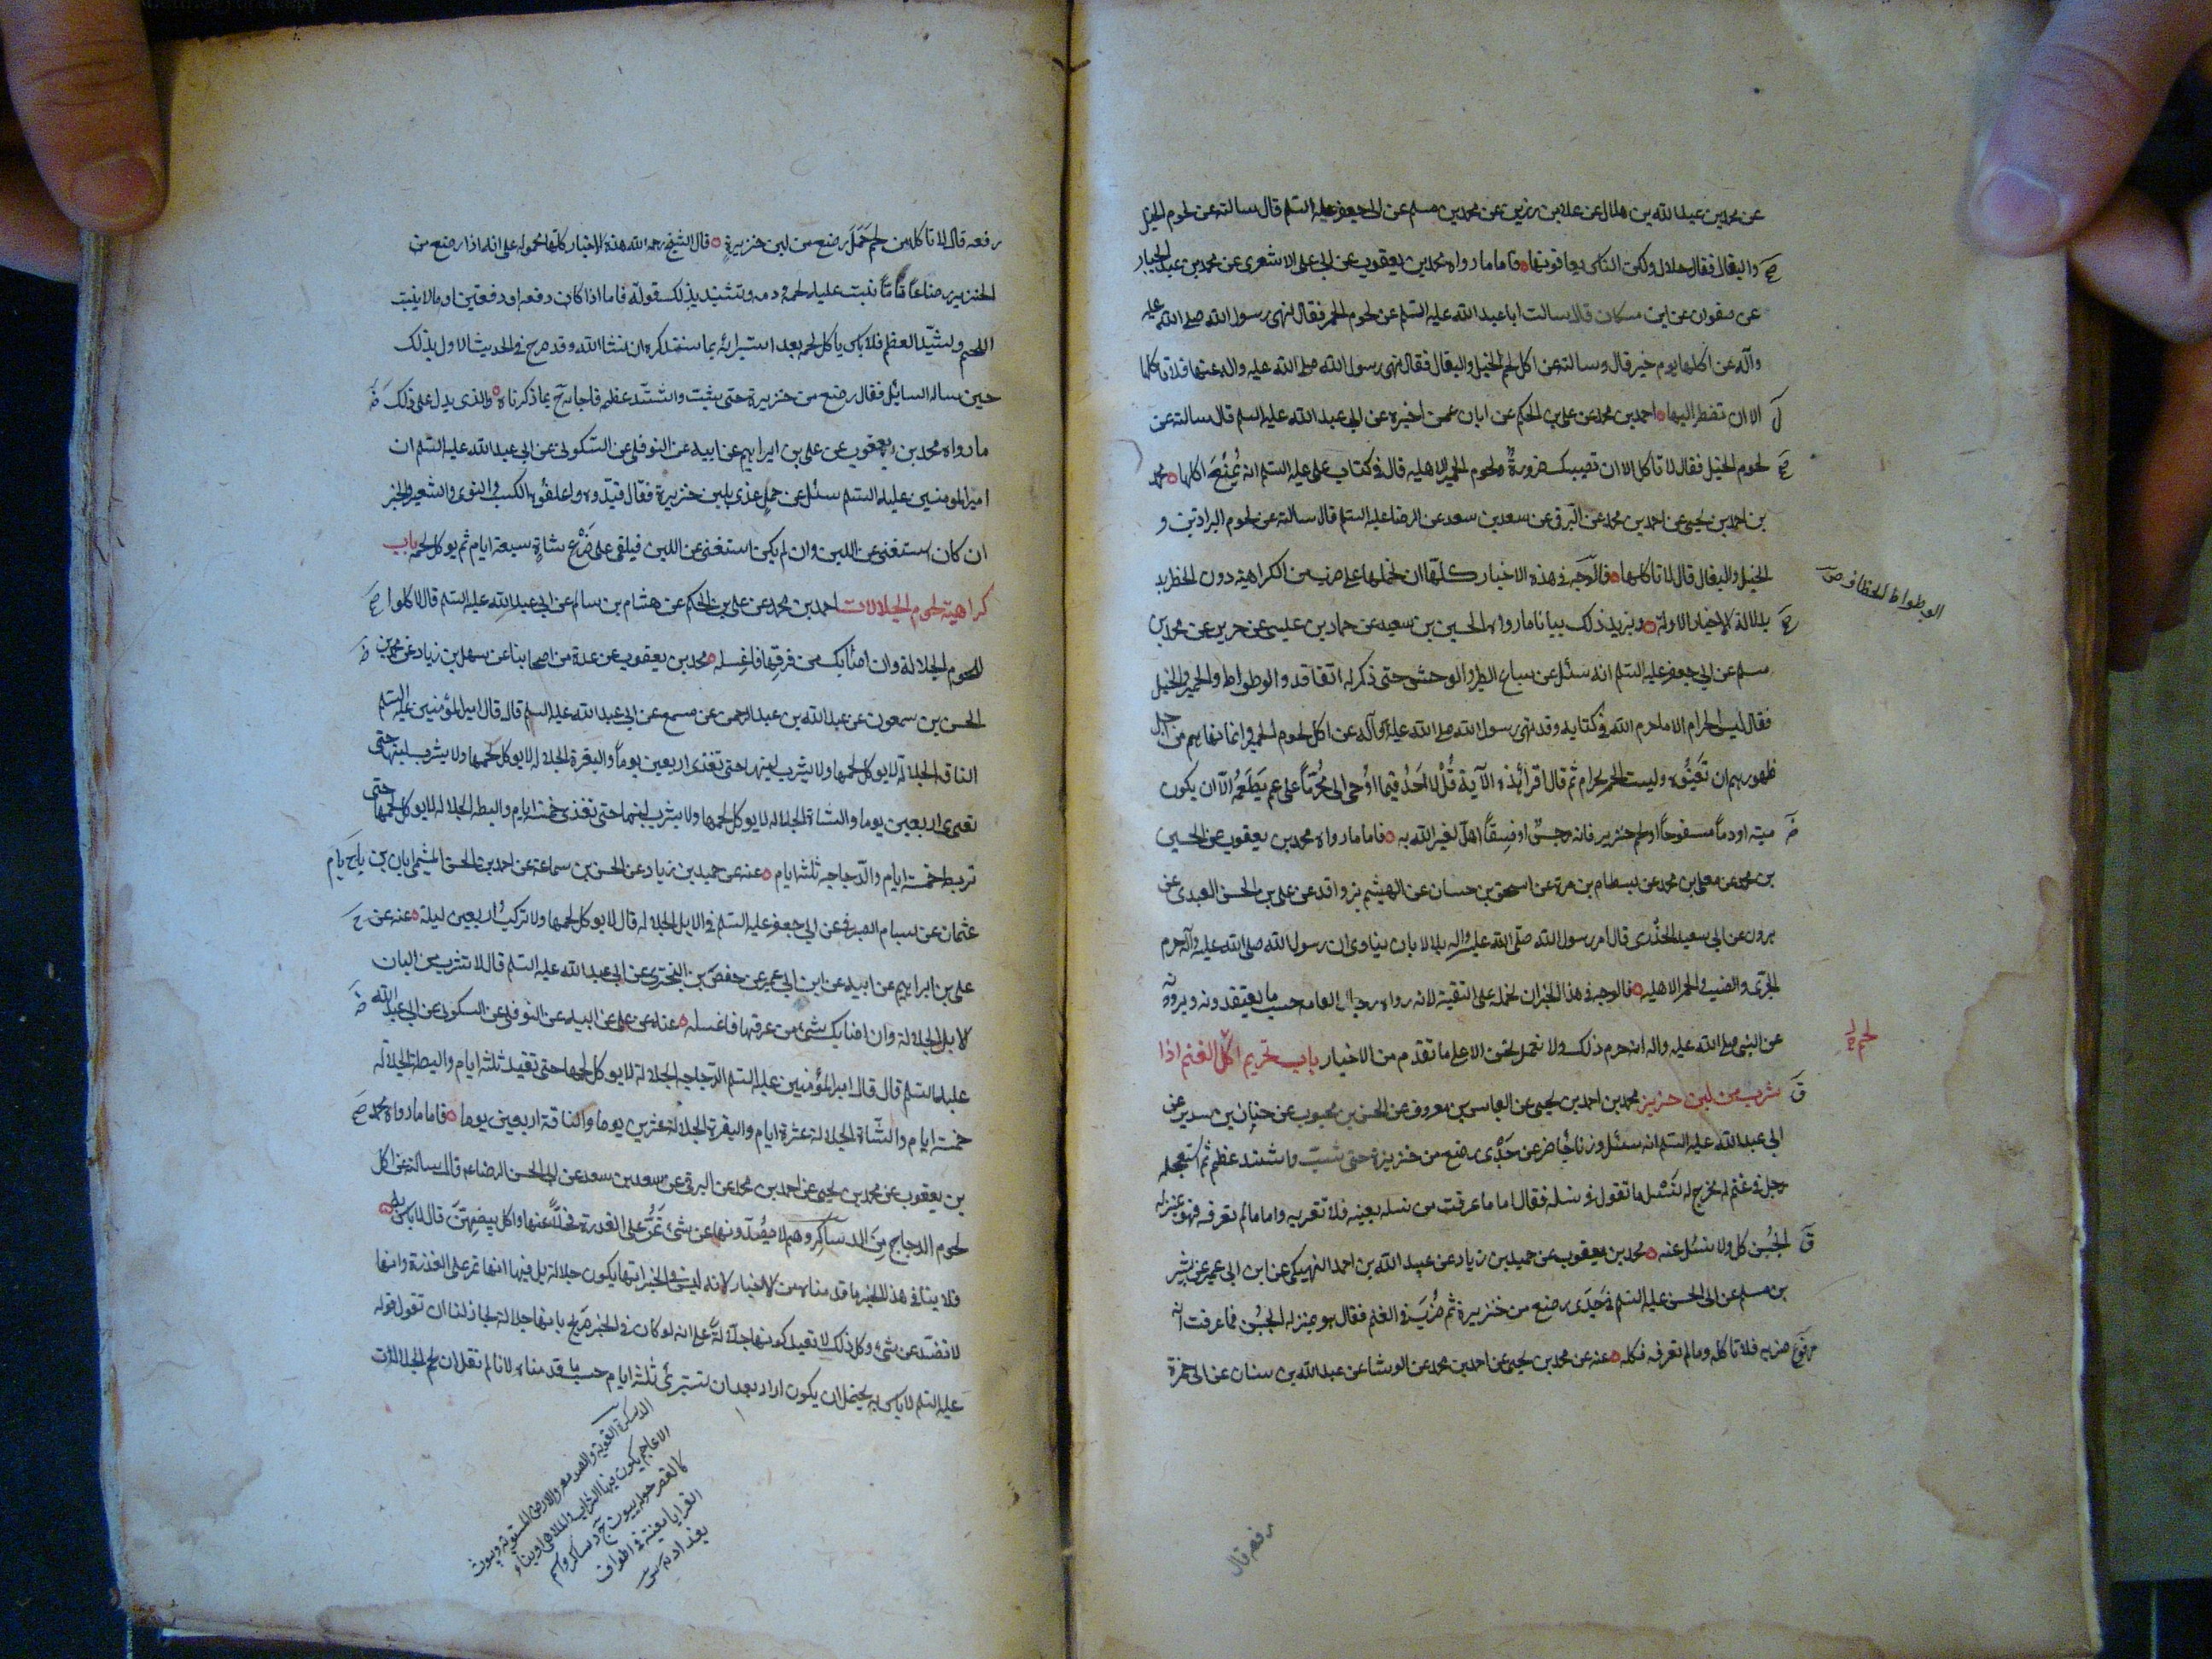 عن محمد بن عبد الله بن هلال عن علا بن رزين عن محمد بن مسلم عن ابى جعفر عليه السلم قال سالته عن لحوم الخيل
والبغال فقال حلال ولكن الناس يعافونها فاما ما رواه محمد بن يعقوب عن ابى على الاشعرى عن محمد بن عبد الجبار
عن صفون عن ابن مسكان قال سالت ابا عبد الله عليه السلم عن لحوم الحمر فقال نهى رسول الله صلى الله عليه
وآله عن اكلها يوم خيبر قال وسالته عن اكل لحم الخيل والبغال فقال نهى رسول الله صلى الله عليه واله عنها فلا تاكلها
الا ان تضطر اليها احمد بن محمد عن على بن الحكم عن ابان عمن اخبره عن ابى عبد الله عليه السلم قال سالته عن
لحوم الخيل فقال لا تاكل الا ان تصيبك ضرورة ولحوم الحمير الاهليه قال فى كتاب على عليه السلم انه يمنع اكلها محمد
بن احمد بن يحيى عن احمد بن محمد عن البرقى عن سعد بن سعد عن الرضا عليه السلم قال سالته عن لحوم البراذين و
الخيل والبغال قال لا تاكلها فالوجه فى هذه الاخبار كلها ان نحملها على ضرب من الكراهية دون الحظر بد
بدلالة الاخبار الاولة ويزيد ذلك بيانا ما رواه الحسين بن سعيد عن حماد بن عيسى عن حريز عن محمد بن
مسلم عن ابى جعفر عليه السلم انه سئل عن سباع الطير والوحش حتى ذكر له القنافد والوطواط والحمير والخيل
فقال ليس الحرام الا ما حرم الله فى كتابه وقد نهى رسول الله صلى الله عليه وآله عن اكل لحوم الحمير وانما نهاهم من اجل
ظهورهم ان تفنوه وليست الحمر بحرام ثم قال اقرا هذه الآية قُلْ لا اَجِدُ فيما اُوحى الى مُحَرّماً على طاعم يَطْعَمُه الّا ان يكون
ميتة او دماً مسفوحاً او لحم خنزير فانه رجسٌ او فِسقاً اُهلّ لغير الله به فاما ما رواه محمد بن يعقوب عن الحسين
بن محمد عن معلى بن محمد عن بسطام بن مرة عن اسحق بن حسان عن الهيثم بن واقد عن على بن الحسن العبدى عن
هرون عن ابى سعيد الخُدْرى قال امر رسول الله صلى الله عليه واله بلالا بان ينادى ان رسول الله صلى الله عليه وآله حرم
الجرى والضب والحمر الاهليه فالوجه فى هذا الخبر ان نحمله على التقية لانه رواه رجال العامه حسب ما يعتقدونه ويروونه
عن النبى صلى الله عليه واله انه حرم ذلك ولا نعمل نحن الا على ما تقدم من الاخبار باب تحريم اكل الغنم اذا
شرب من لبن خنزير محمد بن احمد بن يحيى عن العباس بن معروف عن الحسن بن محبوب عن حنان بن سدير عن
ابى عبد الله عليه السلم انه سئل وانا حاضر عن جَدْىٍ رضع من خنزيرة حتى شب واشتد عظمه ثم استفحله
رجل فى غنم له فخرج له نسل ما تقول فى نسله فقال اما ما عرفت من نسله بعينه فلا تقربه واما ما لم تعرفه فهو بمنزله
الجُبُن كل ولا تسئل عنه محمد بن يعقوب عن حميد بن زياد عن عبيد الله بن احمد النهيكى عن ابن ابى عمير عن بشر
بن مسلم عن ابى الحسن عليه السلم فى جَدى رضع من خنزيرة ثم ضُرِبَ فى الغنم فقال هو بمنزله الجُبُن فما عرفت انه
ضربه فلا تاكله وما لم تعرفه فكله عنه عن محمد بن يحيى عن احمد بن محمد عن الوشا عن عبد الله بن سنان عن ابى حمزة
رفعه قال
رفعه قال لا تاكل من لحم حَمَلٍ رضع من لبن خنزيرةٍ قال الشيخ رحمه الله هذه الاخبار كلها محموله على انه اذا رضع من
الخنزيرة رضاعاً تاماً نبت عليه لحمه ودمه وتشتد بذلك قوته فاما اذا كان دفعه او دفعتين او ما لا ينبت
اللحم ولشد العظم فلا باس باكل لحمه بعد استبرائه بما سنذكره انشا الله وقد صرح فى الحديث الاول بذلك
حين ساله السائل فقال رضع من خنزيرة حتى شب واشتد عظمه فاجابه ح بما ذكرناه والذى يدل على ذلك
ما رواه محمد بن يعقوب عن على بن ابراهيم عن ابيه عن النوفلى عن السكونى عن ابى عبد الله عليه السلم ان
امير المومنين عليه السلم سئل عن حمل غذى بلبن خنزيرة فقال قيّدوه واعلفوه الكسب والنوى والشعير والخبز
ان كان استغنى عن اللبن وان لم يكن استغنى عن اللبن فيلقى على ضَرْعِ شاةٍ سبعة ايام ثم يوكل لحمه باب
كراهية لحوم الجلالات احمد بن محمد عن على بن الحكم عن هشام بن سالم عن ابى عبد الله عليه السلم قال لا تاكلوا
لحوم الجلالة وان اصابك من عرقها فاغسله محمد بن يعقوب عن عدة من اصحابنا عن سهل بن زياد عن محمد بن
الحسن بن سمعون عن عبد الله بن عبد الرحمن عن مسمع عن ابى عبد الله عليه السلم قال قال امير المؤمنين عليه السلم
الناقه الجلالة لا يوكل لحمها ولا يشرب لبنها حتى تغذى اربعين يوماً والبقرة الجلاله لا يوكل لحمها ولا يشرب لبنها حتى
تغذى اربعين يوما والشاة الجلاله لا يوكل لحمها ولا يشرب لبنها حتى تغذى خمسة ايام والبطه الجلاله لا يوكل لحمها حتى
تربط خمسة ايام والدجاجه ثلثه ايام عنه عن حميد بن زياد عن الحسن بن سماعة عن احمد بن الحسن الميثمى ابان بن
عثمان عن بسام الصيرفى عن ابى جعفر عليه السلم فى الابل الجلاله قال لا يوكل لحمها ولا تركب اربعين ليلة عنه عن
على بن ابراهيم عن ابيه عن ابن ابى عمير عن حفص بن البخترى عن ابى عبد الله عليه السلم قال لا تشرب من البان
الابل الجلالة وان اصابك شئ من عرقها فاغسله عنه عن على عن ابيه عن النوفلى عن السكونى عن ابى عبد الله
عليه السلم قال قال امير المؤمنين عليه السلم الدجاجه الجلالة لا يوكل لحمها حتى تقيد ثلثة ايام والبطة الجلاله
خمسة ايام والشاة الجلالة عشرة ايام والبقرة الجلالة عشرين يوما والناقة اربعين يوما فاما ما رواه محمد
بن يعقوب عن محمد بن يحيى عن احمد بن محمد عن البرقى عن سعد بن سعد عن ابى الحسن الرضا عم قال سالته عن اكل
لحوم الدجاج من الدساكر وهم لا يصُدّونها عن شئ تَمُرُّ على العذرة مُخلاً عنها واكل بيضهنَّ قال لا باس به
فلا ينافى هذا الخبر ما قدمناه من الاخبار لانه ليس فى الخبر انها يكون جلالة بل فيها انها تمر على العذرة وانها
لا تصَدّ عن شئ وكل ذلك لا يفيد كونها جلّالةً على انه لو كان فى الخبر صَريح بانها جلالة لجاز لنا ان نقول قوله
عليه السلم لا باس به يحتمل ان يكون اراد بعد ان تستبرئ ثلثة ايام حسب ما قدمناه لانا لم نقل ان لحم الجلالات
الدسكرة القرية والصومعه والارض المستوية وبيوت
الاعاجم يكون فيها الشراب والملاهى او بناء
كالقصر حوله بيوت ج دساكر